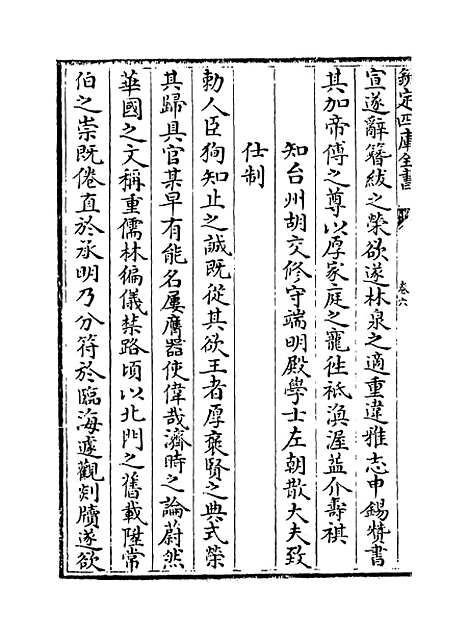 欽定四庫全書
卷六
宣遂辭簪紱之榮欲遂林泉之適重違雅志申錫贊書
其加帝傅之尊以厚家庭之寵往祗渙渥益介壽祺
知台州胡交修守端明殿學士左朝散大夫致
仕制
勅人臣狥知止之誠既從其欲王者厚褒賢之典式榮
其歸具官某早有能名屢膺器使偉哉濟時之論蔚然
華國之文稱重儒林徧儀禁路頃以北門之舊載陞常
伯之崇既倦直於承明乃分符於臨海遽觀剡牘遂欲